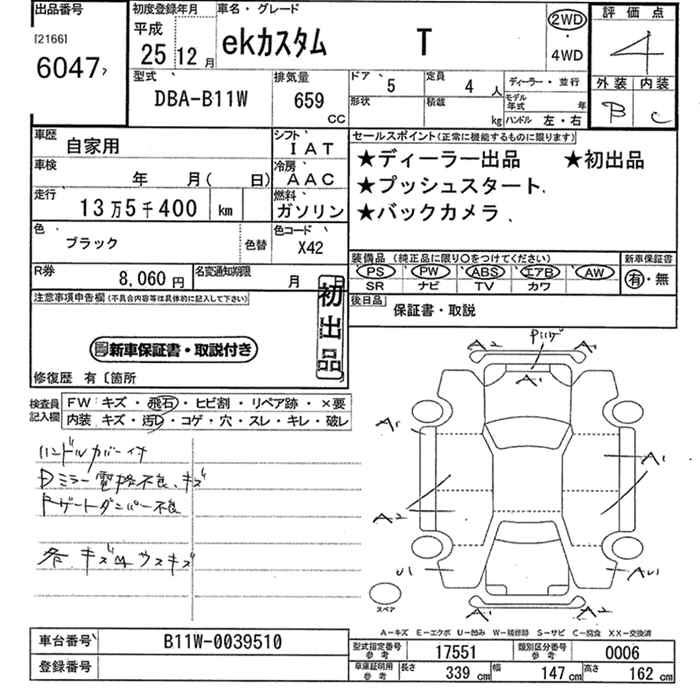 出品番号 初度登録年月 車名・グレード 評価点
[2166] 平成 2WD
6047 25 12月 ekカスタム T 4WD 4
型式 排気量 ドア 5 定員 4人 ディーラー・並行 外装 内装
DBA-B11W 659 CC 形状 積載 kg モデル年式 年 B C
ハンドル 左・右
車歴 自家用 シフト IAT セールスポイント(正常に機能するものに限ります)
車検 年 月( 日) 冷房 AAC ★ディーラー出品 ★初出品
走行 13万5千400 km 燃料 ガソリン ★プッシュスタート
★バックカメラ
色 ブラック 色替 色コード X42
装備品(純正品に限り○をつけてください) 新車保証書
R券 8,060円 名変通知期限 月 PS PW ABS エアB AW 有・無
SR ナビ TV カワ
注意事項申告欄(不具合内容等は具体的に記入して下さい) 初出品 後日品 保証書・取説
新車保証書・取説付き
修復歴 有〔箇所
検査員記入欄 FW キズ・飛石・ヒビ割・リペア跡・×要
内装 キズ・汚レ・コゲ・穴・スレ・キレ・破レ
ハンドルカバー付
Dミラー電格不良、キズ
Fゲートダンパー不良
各 キズ ウスキズ
A2 A2
A1
A1 A1
A2
U1 AU1
スペア A1 A2
A-キズ E-エクボ U-凹み W-補修跡 S-サビ C-腐食 XX-交換済
車台番号 B11W-0039510 型式指定番号 参考 17551 類別区分番号 参考 0006
登録番号 車庫証明用 参考 長さ 339 cm 幅 147 cm 高さ 162 cm